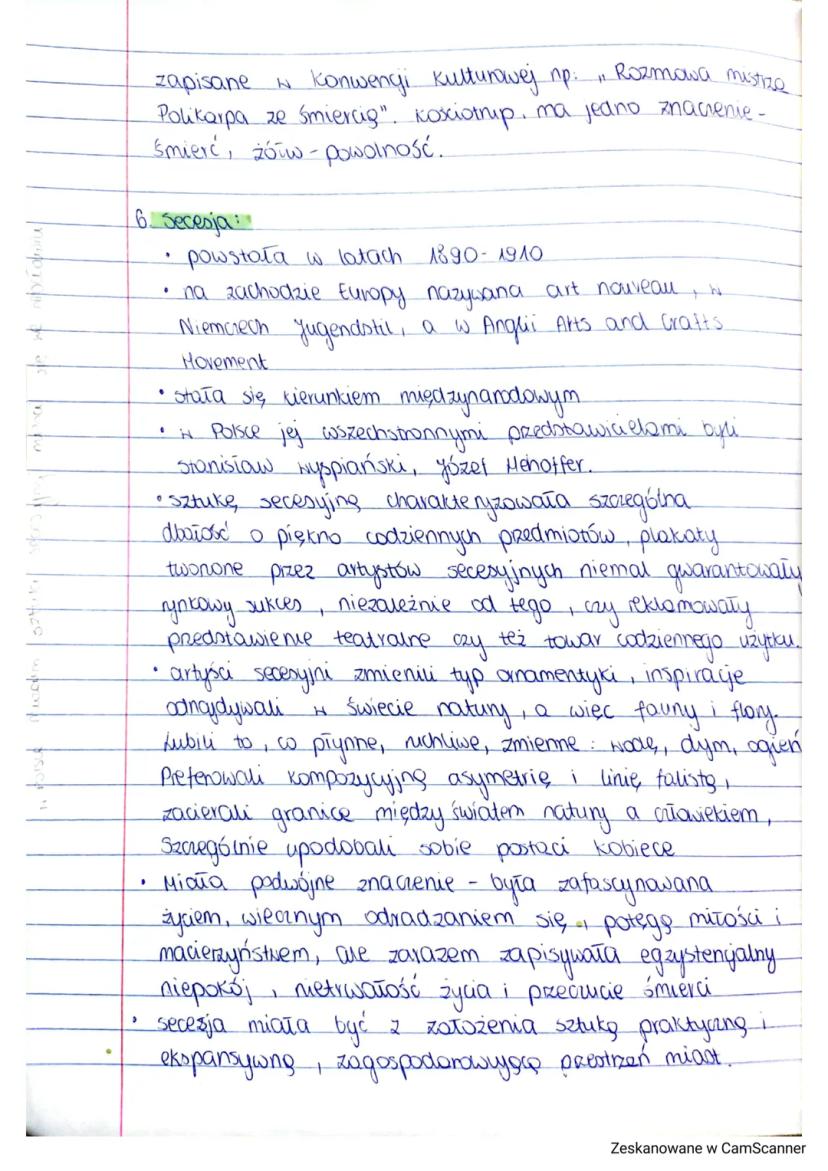 zapisane w konwencji kulturowej np: „Rozmowa mistrza
Polikarpa ze śmiercią". Kościotrup. ma jedno znaczenie -
śmierć, żółw - powolność.
6. Secesja:
• powstała w latach 1890-1910
• na zachodzie Europy nazywana art nouveau, w
Niemczech Jugendstil, a w Anglii Arts and Crafts
Movement
• stała się kierunkiem międzynarodowym
• w Polsce jej wszechstronnymi przedstawicielami byli
Stanisław Wyspiański, Józef Mehoffer.
• sztukę secesyjną charakteryzowała szczególna
dbałość o piękno codziennych przedmiotów, plakaty
tworzone przez artystów secesyjnych niemal gwarantowały
rynkowy sukces, niezależnie od tego, czy reklamowały
przedstawienie teatralne czy też towar codziennego użytku.
• artyści secesyjni zmienili typ ornamentyki, inspiracje
odnajdywali w świecie natury, a więc fauny i flory.
Lubili to, co płynne, ruchliwe, zmienne: wodę, dym, ogień
Preferowali kompozycyjną asymetrię i linię falistą,
zacierali granicę między światem natury a człowiekiem,
Szczególnie upodobali sobie postaci kobiece
• Miała podwójne znaczenie - była zafascynowana
życiem, wiecznym odradzaniem się, potęgą miłości i
macierzyństwem, ale zarazem zapisywała egzystencjalny
niepokój, nietrwałość życia i przeczucie śmierci
• secesja miała być z założenia sztuką praktyczną i
ekspansywną, zagospodarowującą przestrzeń miast.
Zeskanowane w CamScanner